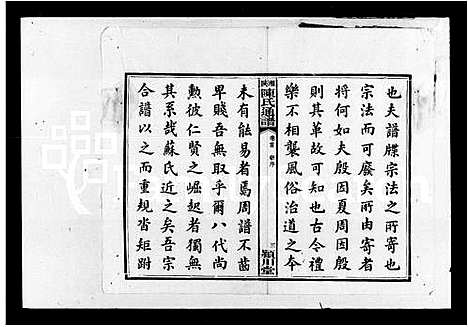 也夫譜牒宗法之所寄也
宗法而可廢矣所由寄者
將何如夫殷因夏周因殷
則其革故可已古今禮
樂不相襲風俗治道之本
陳氏通譜
卷首 序
三
潁川堂
未有能易者焉周譜不齒
卑賤吾無取乎爾八代尚
勲彼仁賢之崛起者獨無
其系哉蘇氏近之矣吾宗
合譜以之而重規沓矩附